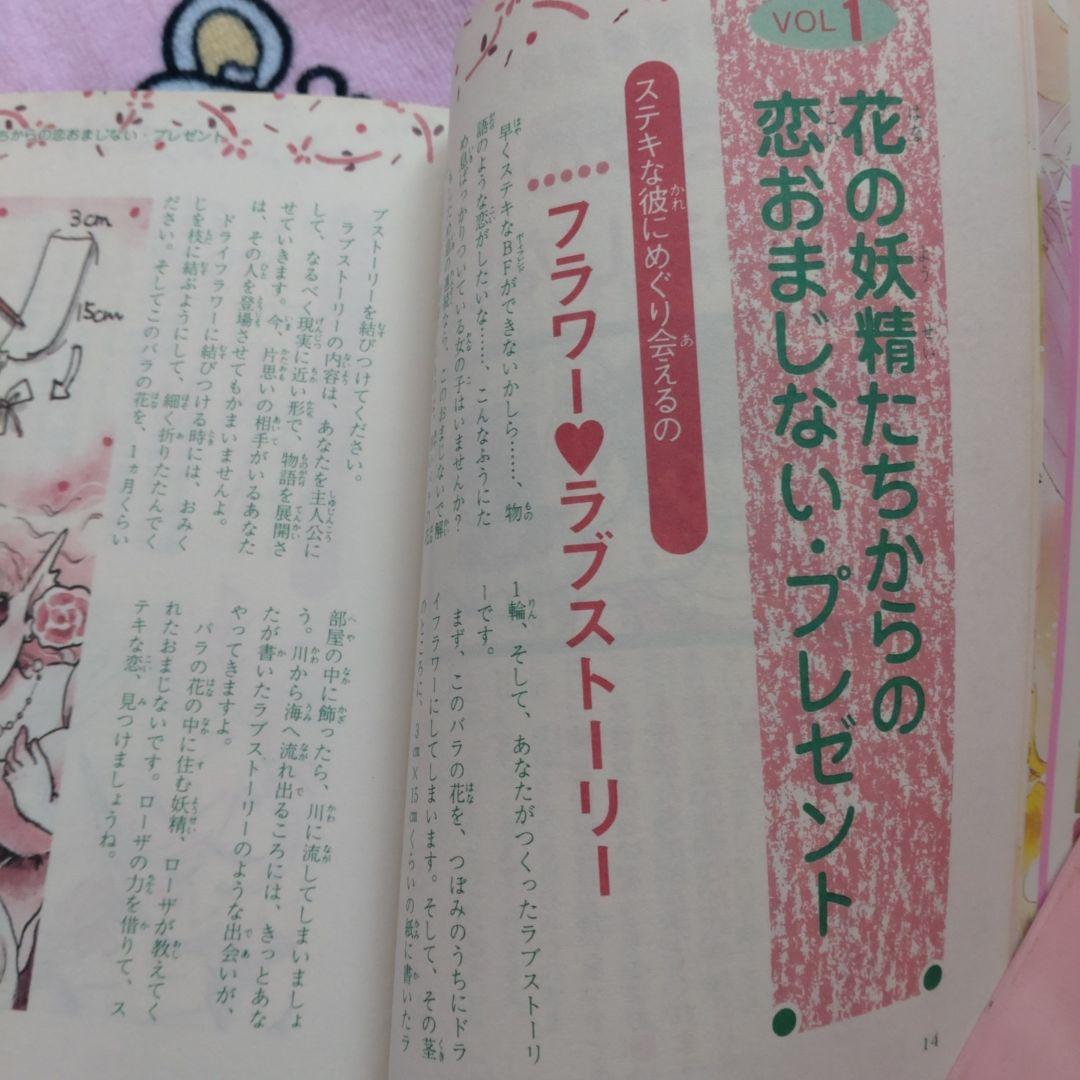 VOL 1
花の妖精たちからの
恋おまじない・プレゼント
ステキな彼にめぐり会えるの
フラワー♥ラブストーリー
早くステキなBFができないかしら……、物
語のような恋がしたいな……、こんなふうにた
め息ばっかりついている女の子はいませんか?
このおまじないで解
1輪、そして、あなたがつくったラブストーリ
ーです。
まず、このバラの花を、つぼみのうちにドラ
イフラワーにしてしまいます。そして、その茎
のところに、3cm×15cmくらいの紙に書いたラ
14
ちからの恋おまじない・プレゼント
ブストーリーを結びつけてください。
ラブストーリーの内容は、あなたを主人公に
して、なるべく現実に近い形で、物語を展開さ
せていきます。今、片思いの相手がいるあなた
は、その人を登場させてもかまいませんよ。
ドライフラワーに結びつける時には、おみく
じを枝に結ぶようにして、細く折りたたんでく
ださい。そしてこのバラの花を、1ヵ月くらい
部屋の中に飾ったら、川に流してしまいましょ
う。川から海へ流れ出るころには、きっとあな
たが書いたラブストーリーのような出会いが、
やってきますよ。
バラの花の中に住む妖精、ローザが教えてく
れたおまじないです。ローザの力を借りて、ス
テキな恋、見つけましょうね。
3cm
15cm